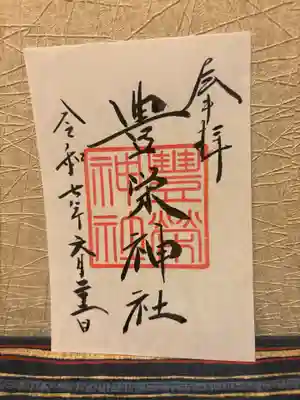 奉拝
豊栄神社
豊榮神社
令和七年六月二十五日